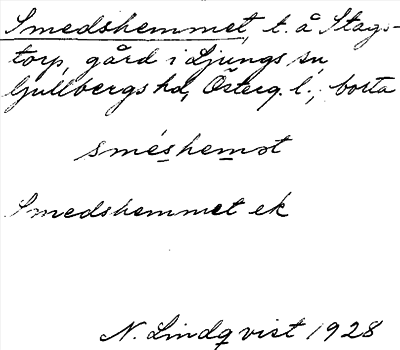 Smedshemmet, t. å Stags-
torp, gård i Ljungs sn
Gullbergs hd, Österg. l., borta
sméshemət
Smedshemmet ek
N. Lindqvist 1928